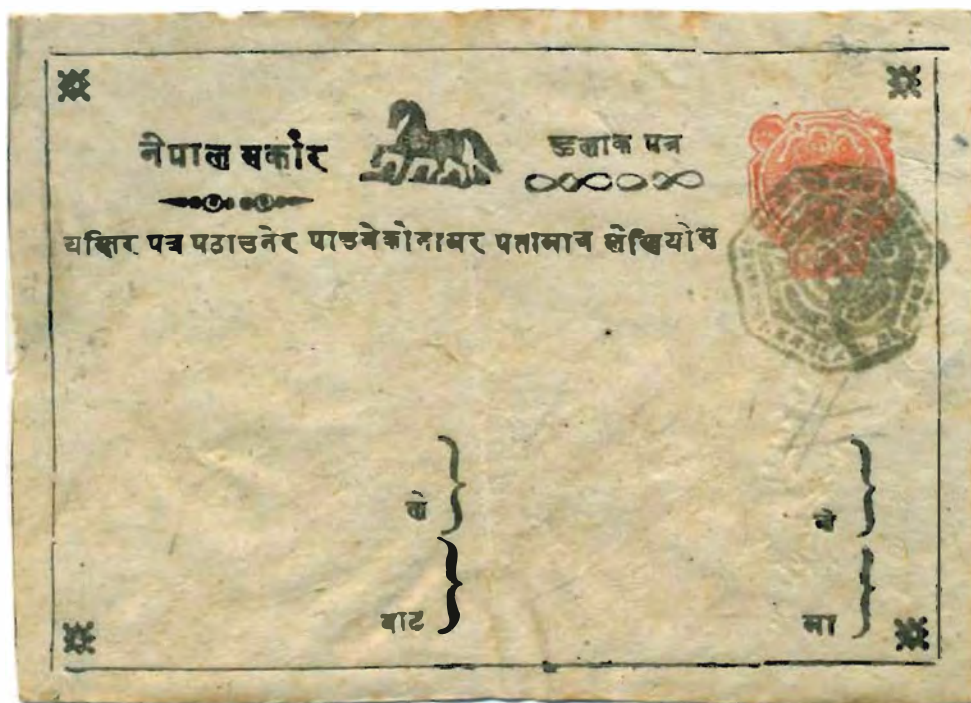 नेपाल सर्कार
हुलाक पत्र
यसतिर पत्र पठाउनेर पाउनेको नामर पतामात्र लेखियोस
को
ने
बाट
मा